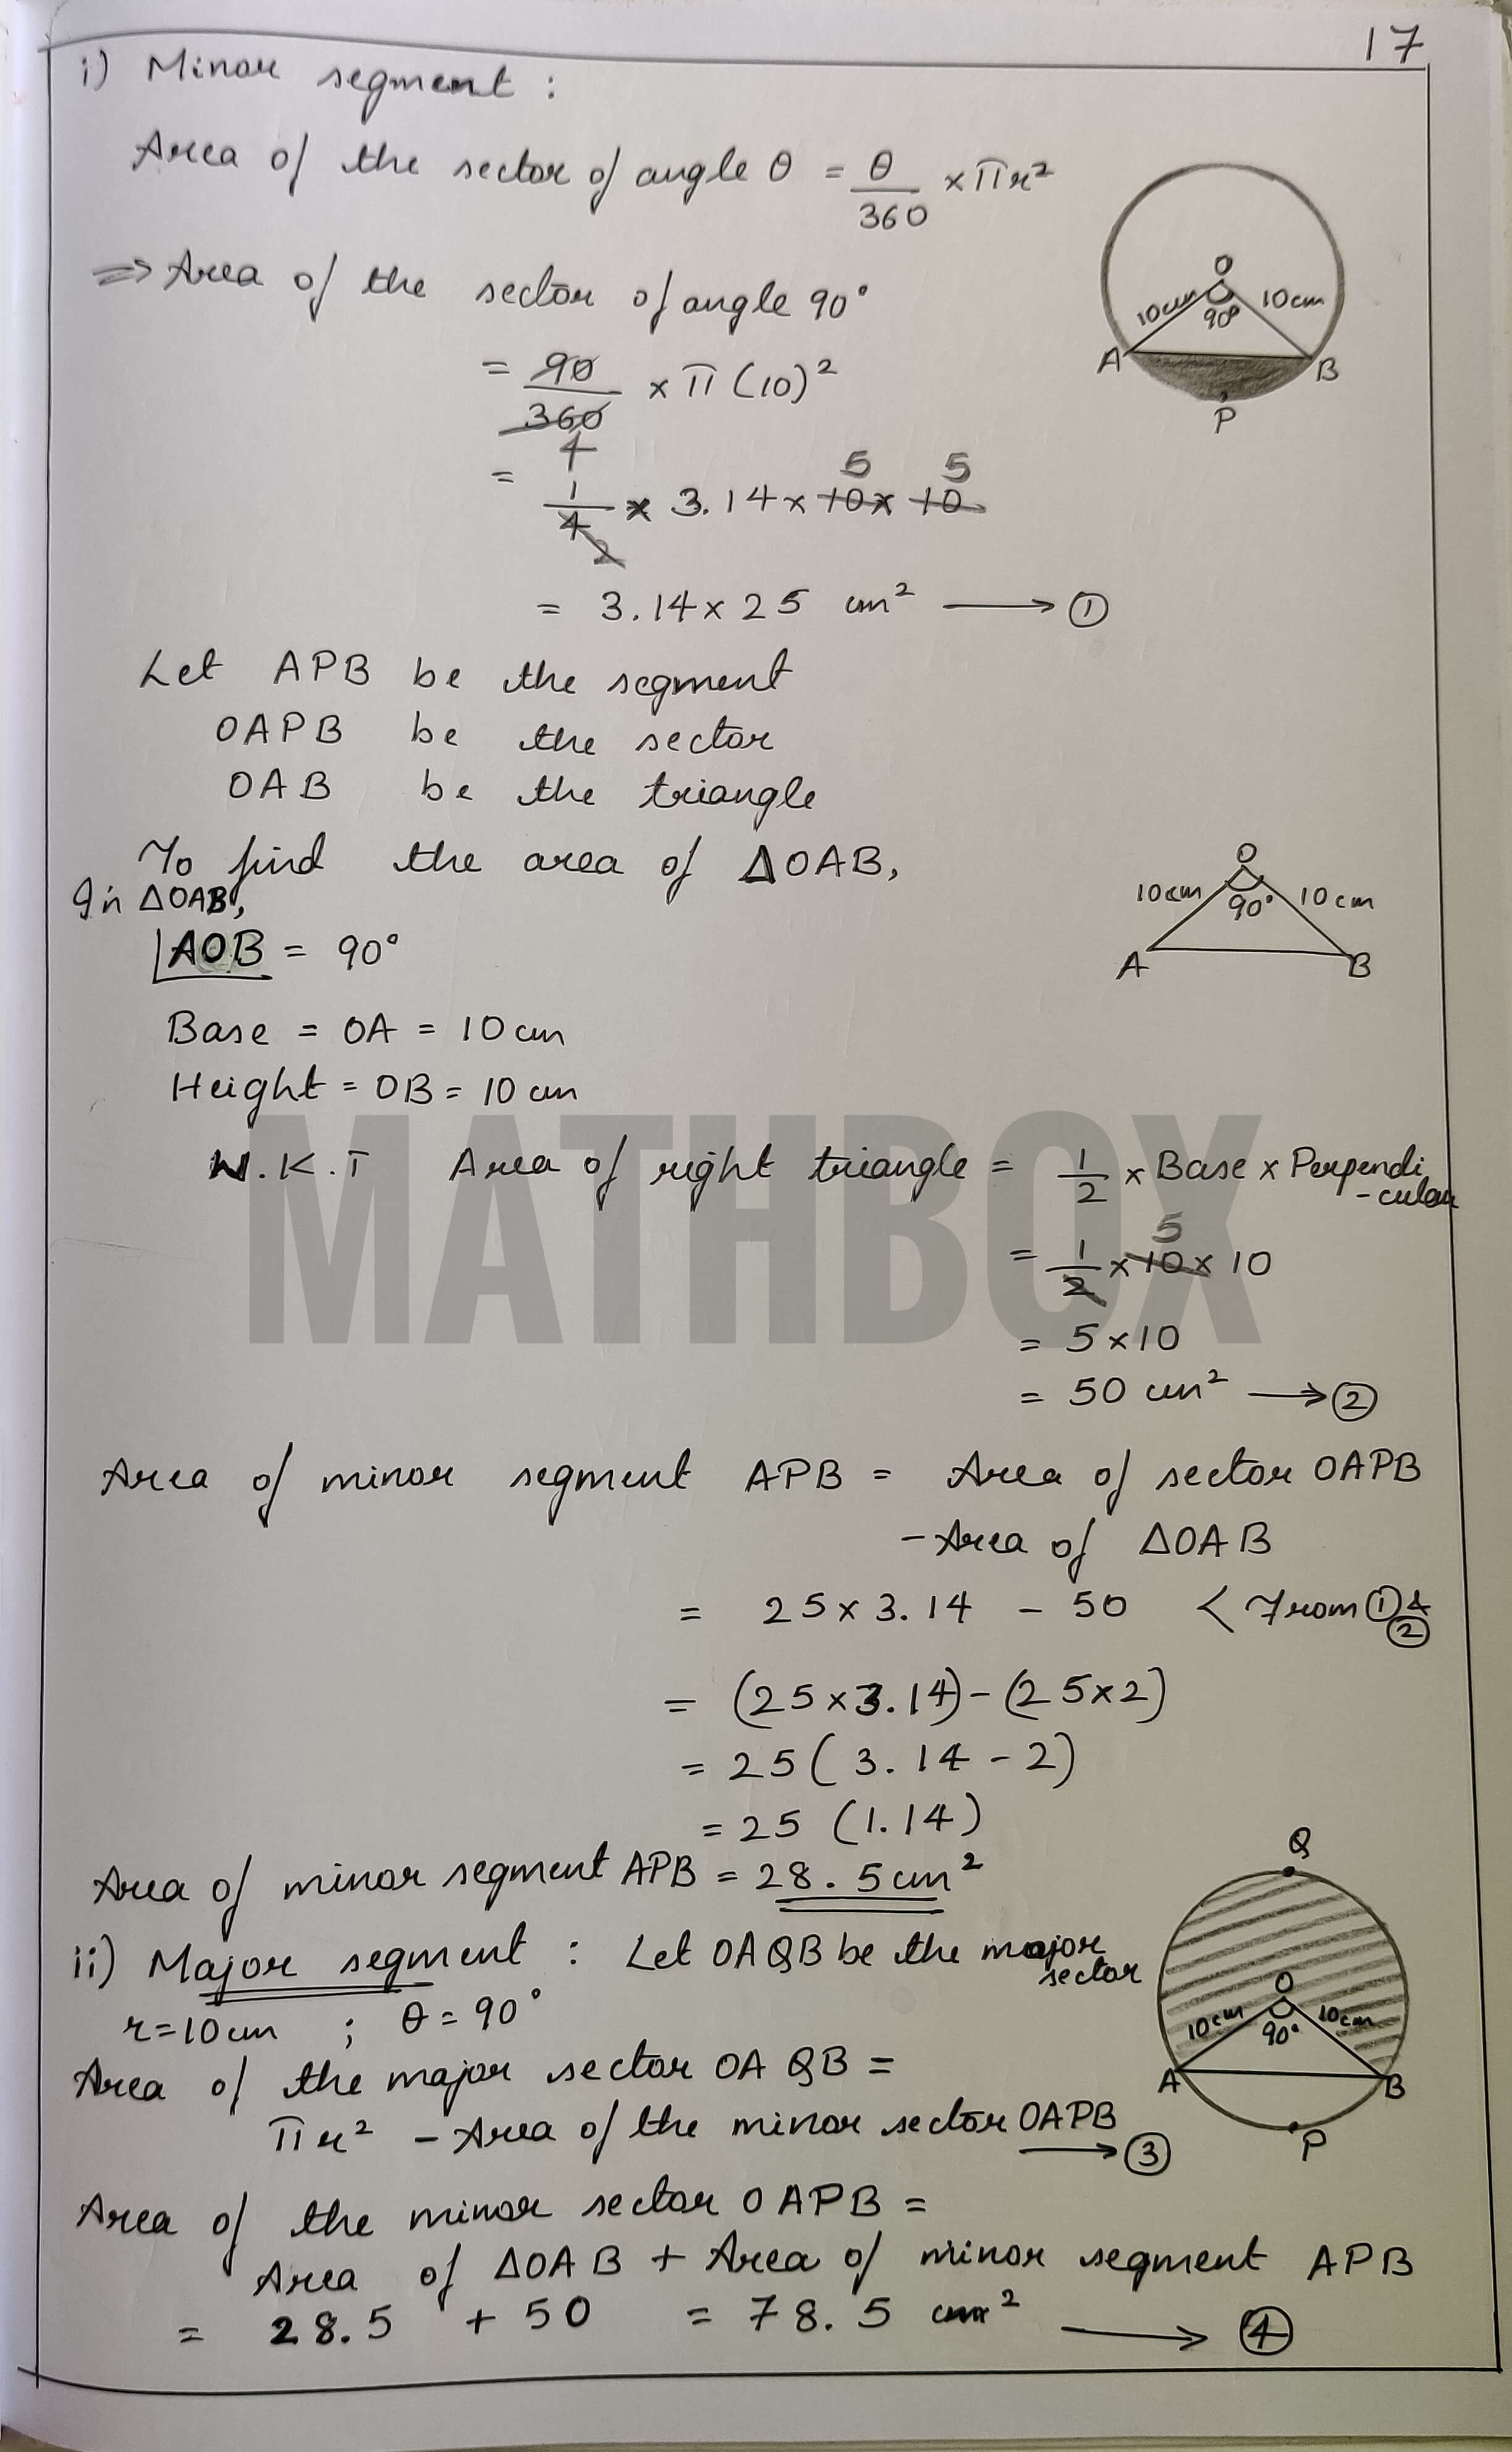 17
i) Minor segment :
Area of the sector of angle θ = θ/360 × πr²
⇒ Area of the sector of angle 90°
= 90/360 × π (10)²
4
5 5
= 1/4 × 3.14 × 10 × 10
2
= 3.14 × 25 cm² → ①
O
10cm 90° 10cm
A B
P
Let APB be the segment
OAPB be the sector
OAB be the triangle
To find the area of ΔOAB,
In ΔOAB,
∠AOB = 90°
Base = OA = 10 cm
Height = OB = 10 cm
O
10cm 90° 10cm
A B
MATHBOX
W.K.T Area of right triangle = 1/2 × Base × Perpendi
-cular
5
= 1/2 × 10 × 10
= 5 × 10
= 50 cm² → ②
Area of minor segment APB = Area of sector OAPB
- Area of ΔOAB
= 25 × 3.14 - 50 < From ① &
②
= (25 × 3.14) - (25 × 2)
= 25 ( 3.14 - 2)
= 25 (1.14)
Area of minor segment APB = 28.5 cm²
ii) Major segment : Let OAQB be the major
sector
r = 10 cm ; θ = 90°
Area of the major sector OAQB =
πr² - Area of the minor sector OAPB
→ ③
Q
O
10cm 90° 10cm
A B
P
Area of the minor sector OAPB =
Area of ΔOAB + Area of minor segment APB
= 28.5 + 50 = 78.5 cm² → ④